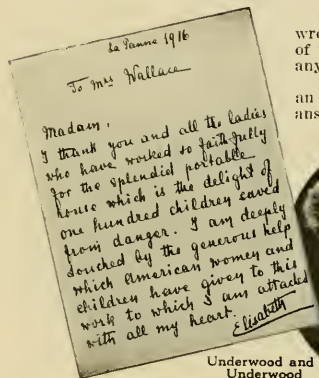 La Panne 1916
To Mrs Wallace
Madam,
I thank you and all the ladies
who have worked so faithfully
for the splendid portable
house which is the delight of
one hundred children saved
from danger. I am deeply
touched by the generous help
which American women and
children have given to this
work to which I am attached
with all my heart.
Elisabeth
wre
of
any
an
ans
Underwood and
Underwood